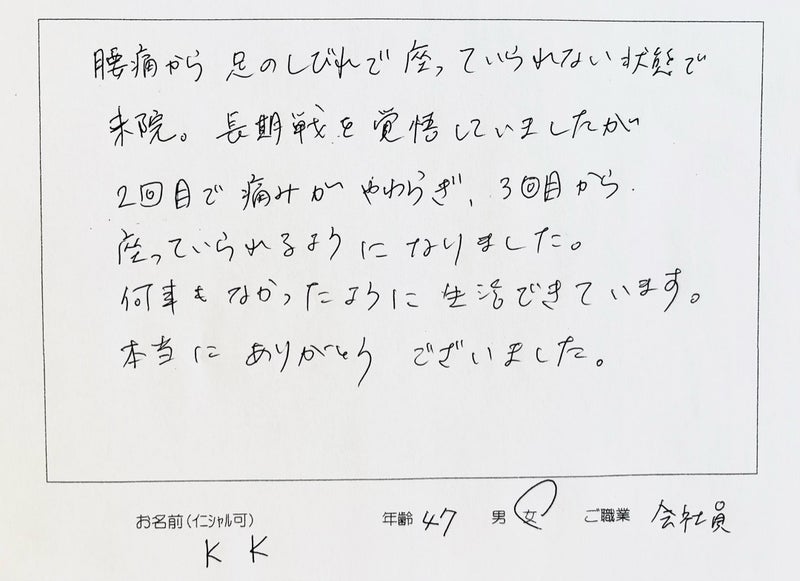 腰痛から 足のしびれで 座っていられない状態で
来院。長期戦を覚悟していましたが
2回目で痛みが やわらぎ、3回目から
座っていられるように なりました。
何事もなかったように 生活できています。
本当に ありがとう ございました。
お名前(イニシャル可) 年齢 47 男 女 ご職業 会社員
K K